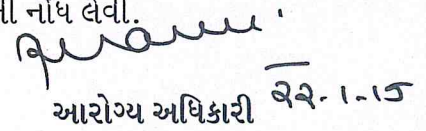 ની નોંધ લેવી.
આરોગ્ય અધિકારી ૨૨-૧-૧૫